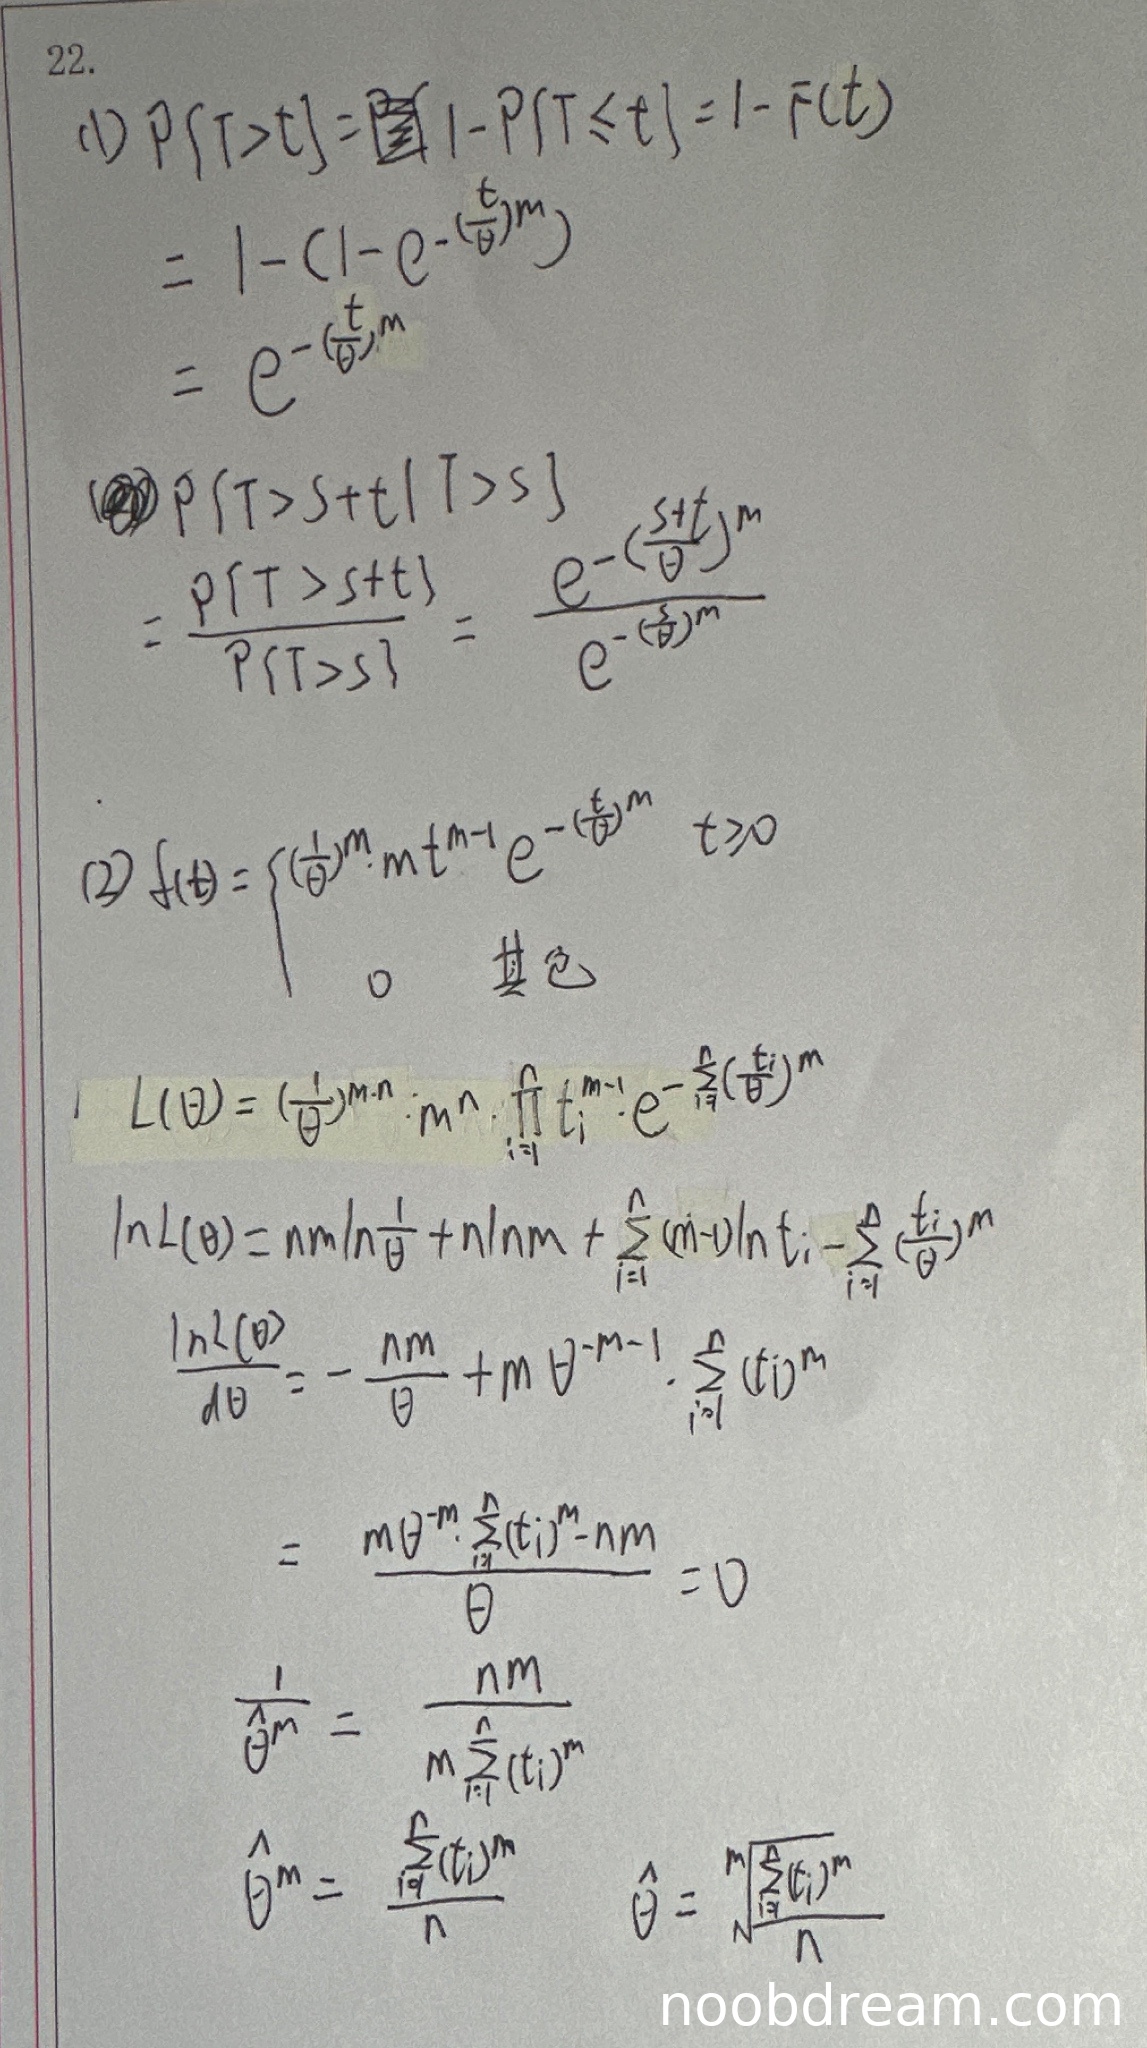 22.
(1) P{T>t} = 1-P{T≤t} = 1-F(t)
= 1-(1-e^{-(t/θ)^m})
= e^{-(t/θ)^m}
P{T>s+t|T>s}
= P{T>s+t}/P{T>s} = e^{-((s+t)/θ)^m}/e^{-(s/θ)^m}
(2) f(t) = { (1/θ)^m·mt^{m-1}e^{-(t/θ)^m} t≥0
0 其它
L(θ) = (1/θ)^{m·n}·m^n·∏_{i=1}^{n} t_i^{m-1}·e^{-∑_{i=1}^{n}(t_i/θ)^m}
lnL(θ) = nmln1/θ + nlnm + ∑_{i=1}^{n}(m-1)lnt_i - ∑_{i=1}^{n}(t_i/θ)^m
lnL(θ)/dθ = -nm/θ + mθ^{-m-1}·∑_{i=1}^{n}(t_i)^m
= (mθ^{-m}·∑_{i=1}^{n}(t_i)^m-nm)/θ = 0
1/θ̂^m = nm/(m∑_{i=1}^{n}(t_i)^m)
θ̂^m = ∑_{i=1}^{n}(t_i)^m/n θ̂ = \sqrt[m]{∑_{i=1}^{n}(t_i)^m/n}
noobdream.com